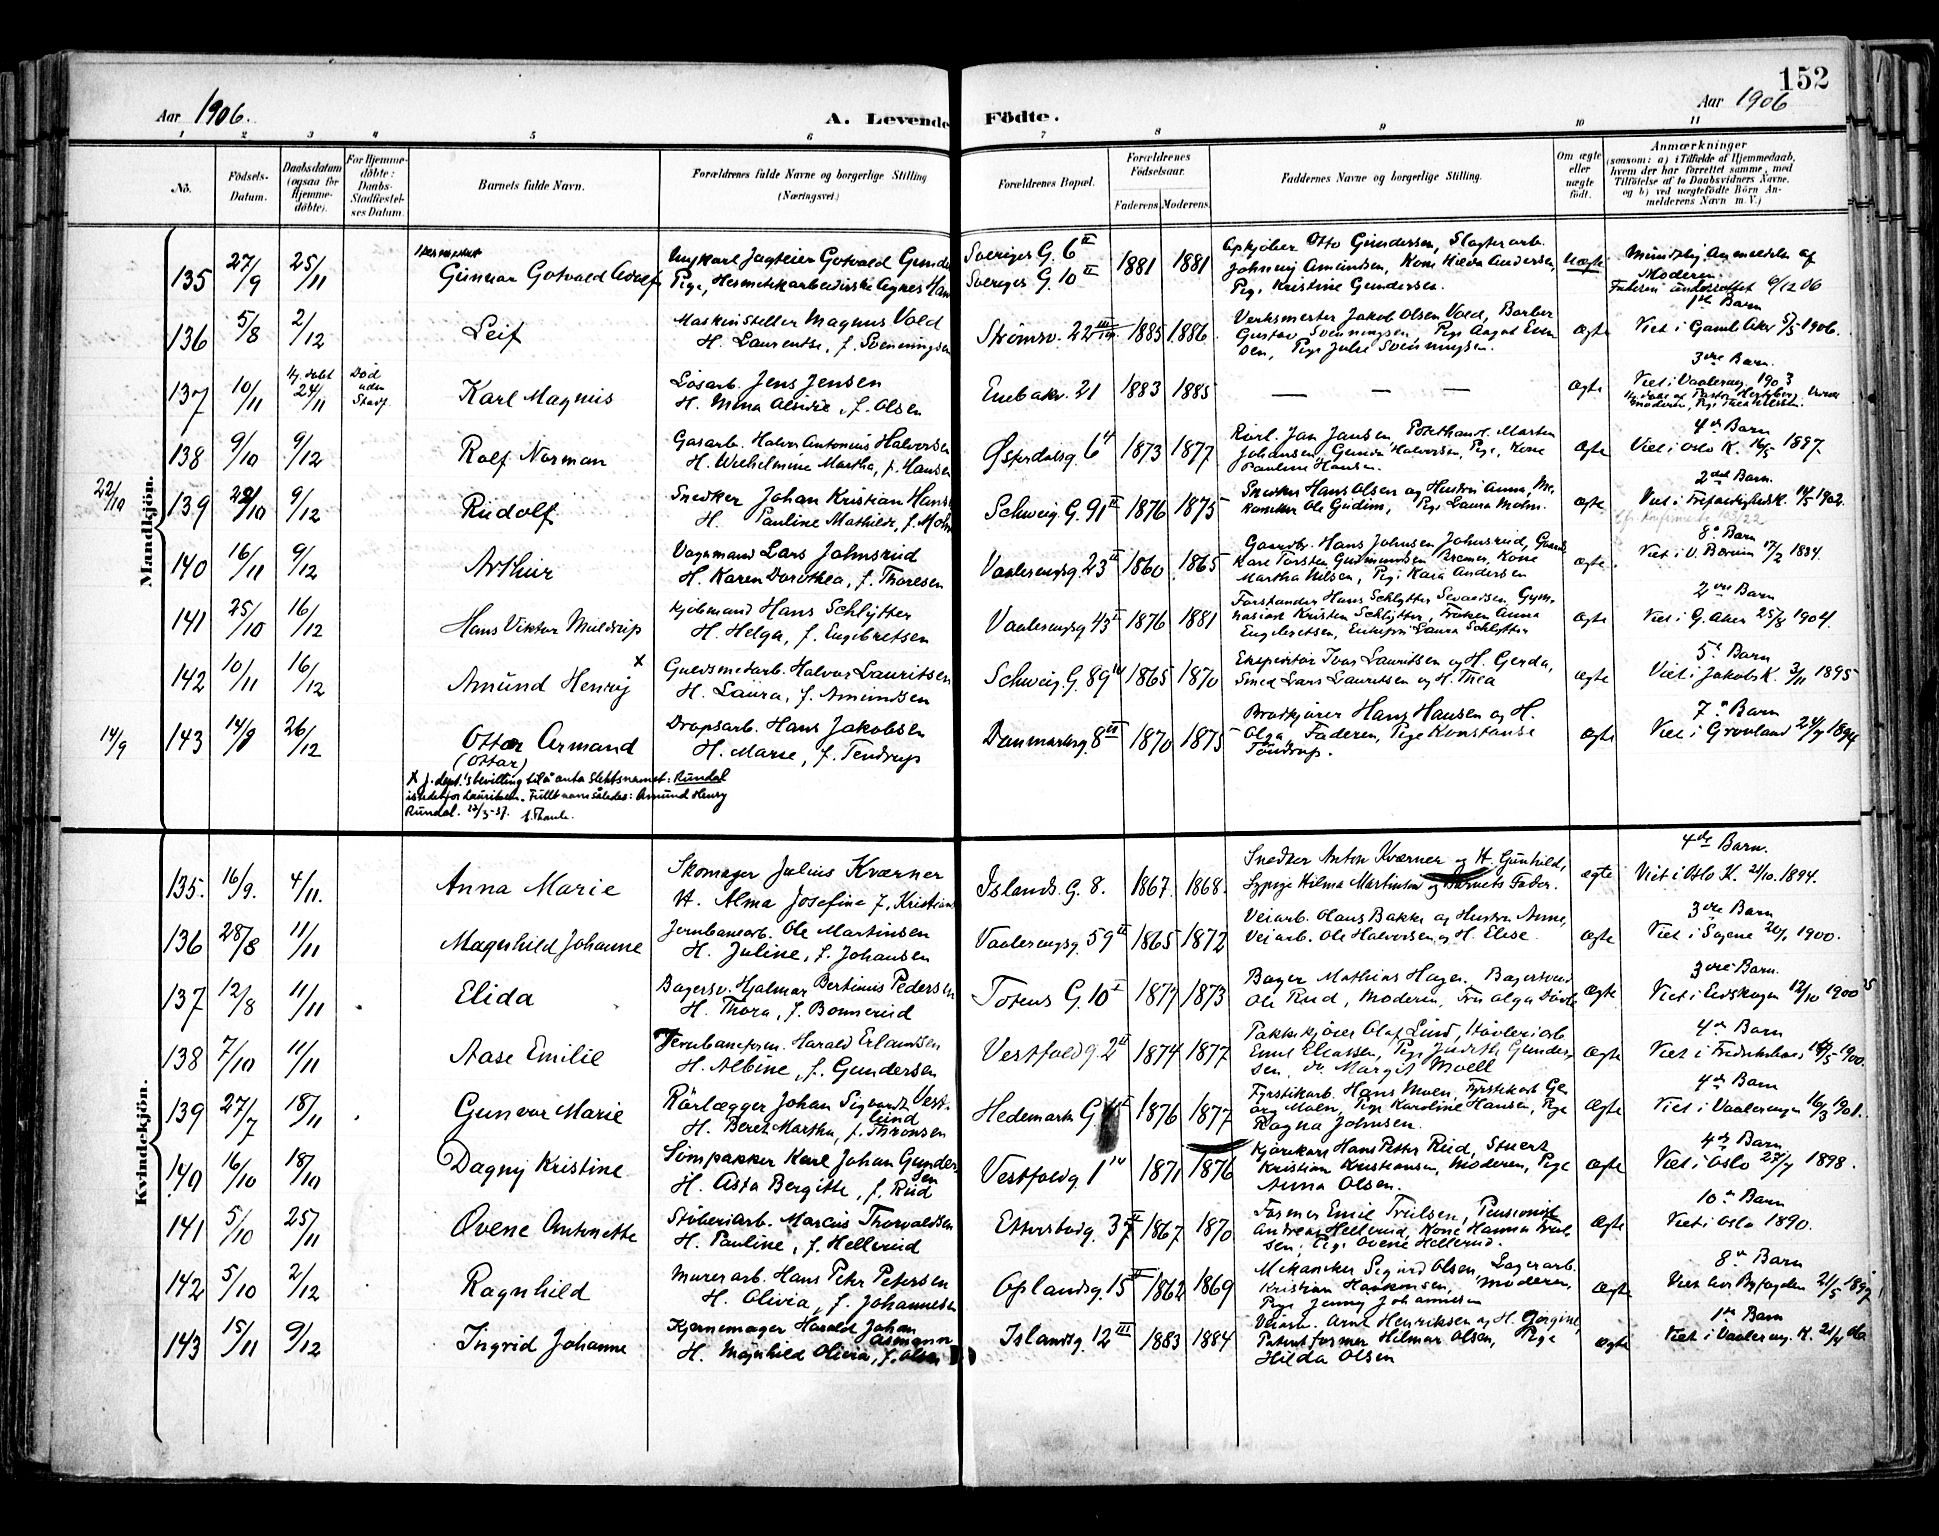 152
Aar 1906.
A. Levende Födte.
Aar 1906
1 2 3 4 5 6 7 8 9 10 11
No.
Födsels-Datum.
Daabsdatum (ogsaa før Hjemmedöbte).
For Hjemmedöbte: Daabs-Stadfæstelses Datum.
Barnets fulde Navn.
Forældrenes fulde Navne og borgerlige Stilling (Næringsvei.)
Forældrenes Bopæl.
Forældrenes Födselsaar.
Faderens. Moderens.
Faddernes Navne og borgerlige Stilling.
Om ægte eller uægte födt.
Anmærkninger
(saasom: a) i Tilfælde af Hjemmedaab, hvem der har forrettet samme, med Tilföielse af to Daabsvidners Navne, og b) ved uægtefödte Börn Anmelderens Navn m. V.)
Mandkjön.
135 27/9 25/11 Gunnar Gotvald Adolf
Ungkarl Jagteier Gotvald
Pige, Hermetikarbeiderske Agnes
Sveriges G. 6 II
Sveriges G. 10 II
1881 1881
Opkjøber Otto Gundersen, Slagterarb.
Johannij Amundsen, Kone Hilda Andersen,
Pige Kristine Gundersen.
Uægte
Mundtlig Anmeldelse af
Moderen.
Faderen underrettet 6/12 06
136 5/8 2/12 Leif
Maskinsteller Magnus Vold
H. Laurentse, f. Svenningsen
Strømsv. 22 1885 1886
Verksmester Jakob Olsen Vold, Barber
Gustav Svenningsen, Pige Aagot Even
sen, Pige Julie Svenningsen.
ægte
1ste Barn
Viet i Gaml. Aker 5/5 1906.
137 10/11 24/11
Død uden Stadf.
Karl Magnus
Løsarb. Jens Jensen
H. Mina Alvide, f. Olsen
Enebakv. 21 1883 1885
— — —
ægte
3die Barn.
Viet i Vaalereng. 1903
138 9/10 9/12 Rolf Norman
Gasarb. Halvor Antonius Halvorsen
H. Wilhelmine Martha, f. Hansen
Østerdalsg. 6 4 1873 1877
Rørl. Jan Jansen, Martin
Johansen, Gunda Halvorsen, Pige, Kone
Pauline Hansen.
ægte
4de Barn
Viet i Oslo K. 16/5 1897.
22/10
139 9/12 Rudolf
Snedker Johan Kristian Hans
H. Pauline Mathilde, f. Mohn
Schweig. G. 91 II 1876 1875
Snedker Hans Olsen og Hustru Anna, Me
kaniker Ole Gudim, Pige Laura Mohn.
ægte
2det Barn.
Viet i Trefoldighedsk. 14/5 1902.
140 16/11 9/12 Arthur
Vognmand Lars Johnsrud
H. Karen Dorothea, f. Thoresen
Vaalerengsg. 23 II 1860 1865
Gaardbr. Hans Johnsen Johnsrud, Gaard
Karl Torsten Gudmundsen Bremer, Kone
Martha Nilsen, Pige Kaia Andersen
ægte.
8de Barn
Viet i V. Bærum 17/2 1884.
141 25/10 16/12 Hans Viktor Muldrup
Kjøbmand Hans Schlytter
H. Helga, f. Engebretsen
Vaalerengsg 43 II 1876 1881
Forstander Hans Schlytter Sevaldsen, Gym-
nasiast Kristen Schlytter, Frøken Anna
Engebretsen, Enkefru Laura Schlytter
ægte
2den Barn
Viet i G. Aker 25/8 1904.
142 10/11 16/12 Amund Henrij x
Guldsmedarb. Halvor Lauritsen
H. Laura, f. Amundsen
Schweig. G. 89 IV 1865 1870
Ekspeditør Ivar Lauritsen og H. Gerda,
Smed Lars Lauritsen og H. Thea
ægte
5te Barn
Viet i Jakobs K. 3/11 1895
14/9
143 14/9 26/12 Ottar Armand
(Ottar)
Dropsarb. Hans Jakobsen
H. Marie, f. Tendrup
Danmarksg. 8 III 1870 1875
Brødkjører Hans Hansen og H.
Olga, Faderen, Pige Konstanse
Tøndrup.
ægte
7de Barn
Viet i Grønland 24/7 1894
x J. dept.'s bevilling til å anta slektsnavnet: Rundal
istedetfor Lauritsen. Fullt navn således: Amund Henry
Rundal. 22/3-27.
Kvindekjön.
135. 16/9. 4/11. Anna Marie
Skomager Julius Kværner
H. Alma Josefine f. Kristians
Islands. G. 8. 1867. 1868.
Snedker Anton Kværner og H. Gunhild,
Sypige Hilma Martinsen og Barnets Fader.
ægte
4de Barn.
Viet i Oslo K. 21/10. 1894.
136 28/8 11/11 Magnhild Johanne
Jernbanearb. Ole Martinsen
H. Juline, f. Johansen
Vaalerengsg. 59 II 1865 1872
Veiarb. Hans Bakke og Hustru Anne,
Veiarb. Ole Halvorsen og H. Elise.
ægte
3die Barn
Viet i Sagene 20/1 1900.
137 12/8 11/11 Elida
Bagersv. Hjalmar Bertinius Pedersen
H. Thora, f. Bonnerud
Totens G. 10 I 1877 1873
Bager Mathias Hagen, Bagersvend
Ole Rud, Moderen, Fru Olga
ægte
3die Barn.
Viet i Eidskogen 12/10 1900
138 7/10 11/11 Aase Emilie
Jernbaneform. Harald Erlandsen
H. Albine, f. Gundersen
Vestfoldg. 2 II 1874 1877
Pakkekjører Olaf Lund, Høvleriarb.
Emil Eliassen, Pige Judith Gunder-
sen, do Margit Moell
ægte
4de Barn
Viet i Fredrikshald 1900.
139 27/7 18/11 Gunvor Marie
Rørlægger Johan Sigvardt Vest-
lund
H. Beret Martha, f. Thronsen
Hedemarks G. 1876 1877
Fyrstikarb. Hans Moen, Fyrstikarb. Ge
org Moen, Pige Karoline Hansen, Pige
Ragna Johnsen.
ægte
4de Barn
Viet i Vaalerengen 16/3 1901.
140 16/10 18/10 Dagny Kristine
Sømpakker Karl Johan Gunder
sen
H. Asta Bergitte, f. Rud
Vestfoldg 1 IV 1871 1876
Kjørekarl Hans Petter Rud, Stuert
Kristian Kristiansen, Moderen, Pige
Anna Olsen.
ægte
4de Barn
Viet i Oslo 27/7 1898.
141 5/10 25/11 Ovene Antonette
Støberiarb. Marcus Thorvaldsen
H. Pauline, f. Hellerud
Etterstadg. 35 1867 1870
Former Emil Trulsen, Pensionist
Andreas Hellerud, Kone Hanna Trul
sen, Pige Ovene Hellerud.
ægte
10de Barn
Viet i Oslo 1890.
142 5/10 2/12 Ragnhild
Murerarb. Hans Petr Petersen
H. Olivia, f. Johannesen
Oplandsg. 15 II 1862 1869
Mekaniker Sigurd Olsen, Lagerarb.
Kristian Haakonsen, Moderen,
Pige Jenny Johannesen
ægte
8de Barn
Viet hos Byfogden 21/5
143 15/11 9/12 Ingrid Johanne
Kjernemager Harald Johan
Asmann
H. Magnhild Olivia, f. Olsen
Islandsg. 12 III 1883 1884
Arne Henriksen og H. Gorgine,
former Hilmar Olsen, Pige
Hilda Olsen
ægte
1ste Barn
Viet i Vaalereng. K.